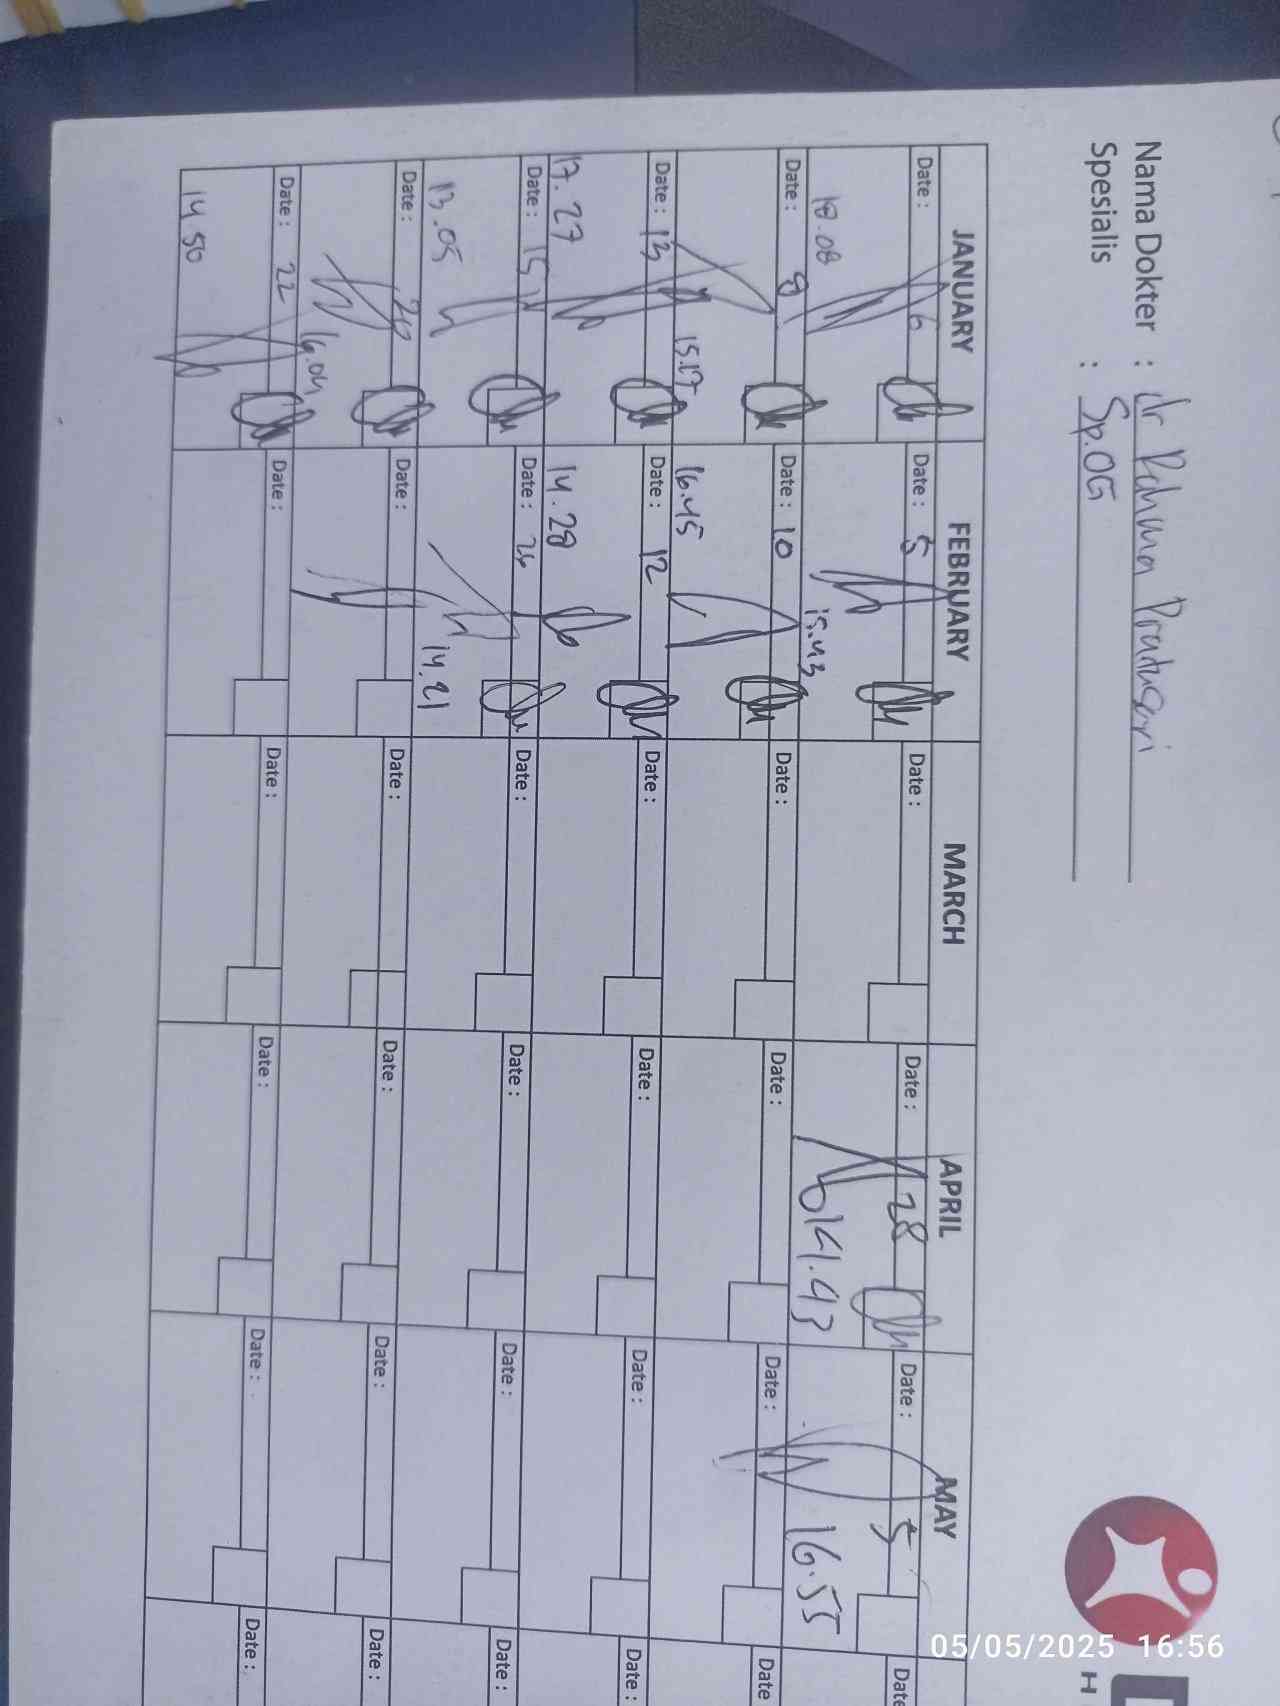 Nama Dokter : dr Rahma Pratusari
Spesialis : Sp.OG
JANUARY FEBRUARY MARCH APRIL MAY
Date : 6 Date : 5 Date : Date : 28 Date : 5 Date
18.08 15.43 14.43 16.55
Date : 8 Date : 10 Date : Date : Date : Date
15.17 16.45
Date : 13 Date : 12 Date : Date : Date : Date :
17.27 14.28
Date : 15 Date : 26 Date : Date : Date : Date :
13.05 14.21
Date : 20 Date : Date : Date : Date : Date :
16.04
Date : 22 Date : Date : Date : Date : Date :
14.50
H
05/05/2025 16:56